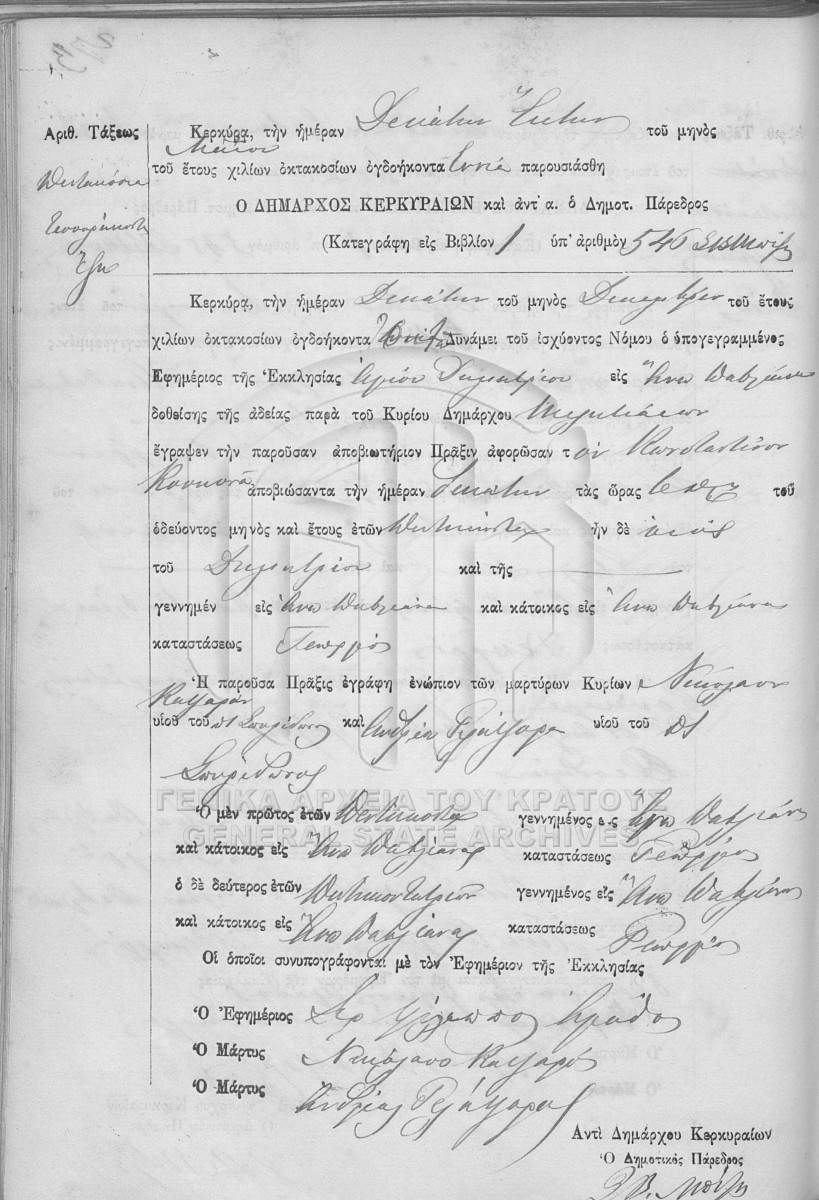 Ἀριθ. Τάξεως
Πεντακόσια
Τεσσαράκοντα
Ἕξη
Κερκύρα, τὴν ἡμέραν Δεκάτην Ἕκτην τοῦ μηνὸς
Μαΐου
τοῦ ἔτους χιλίων ὀκτακοσίων ὀγδοήκοντα ἐννέα παρουσιάσθη
Ο ΔΗΜΑΡΧΟΣ ΚΕΡΚΥΡΑΙΩΝ καὶ ἀντ' α. ὁ Δημοτ. Πάρεδρος
(Κατεγράφη εἰς Βιβλίον 1 ὑπ' ἀριθμὸν 546
Κερκύρα, τὴν ἡμέραν Δεκάτην τοῦ μηνὸς Δεκεμβρίου τοῦ ἔτους
χιλίων ὀκτακοσίων ὀγδοήκοντα Δυνάμει τοῦ ἰσχύοντος Νόμου ὁ ὑπογεγραμμένος
Ἐφημέριος τῆς Ἐκκλησίας Ἁγίου Δημητρίου εἰς Ἄνω Παυλιάνα
δοθείσης τῆς ἀδείας παρὰ τοῦ Κυρίου Δημάρχου Μελητιάεων
ἔγραψεν τὴν παροῦσαν ἀποβιωτήριον Πρᾶξιν ἀφορῶσαν τ όν Κωνσταντῖνον
ἀποβιώσαντα τὴν ἡμέραν Δεκάτην τὰς ὥρας τοῦ
ὁδεύοντος μηνὸς καὶ ἔτους ἐτῶν Πεντήκοντα ἦν δὲ υἱός
τοῦ Δημητρίου καὶ τῆς
γεννημέν εἰς Ἄνω Παυλιάνα καὶ κάτοικος εἰς Ἄνω Παυλιάνας
καταστάσεως Γεωργός
Ἡ παροῦσα Πρᾶξις ἐγράφη ἐνώπιον τῶν μαρτύρων Κυρίων Νικόλαον
Κατσαρόν
υἱοῦ τοῦ Σπυρίδωνος καὶ Ἀνδρέα υἱοῦ τοῦ
Σπυρίδωνος
ΓΕΝΙΚΑ ΑΡΧΕΙΑ ΤΟΥ ΚΡΑΤΟΥΣ
GENERAL STATE ARCHIVES
Ὁ μὲν πρῶτος ἐτῶν Πεντήκοντα γεννημένος ε.ς Ἄνω Παυλιάνα
καὶ κάτοικος εἰς Ἄνω Παυλιάνας καταστάσεως Γεωργός
ὁ δὲ δεύτερος ἐτῶν Πεντηκοντατριῶν γεννημένος εἰς Ἄνω Παυλιάνα
καὶ κάτοικος εἰς Ἄνω Παυλιάνας καταστάσεως Γεωργός
Οἱ ὁποῖοι συνυπογράφονται μὲ τὸν Ἐφημέριον τῆς Ἐκκλησίας
Ὁ Ἐφημέριος
Ὁ Μάρτυς Νικόλαος Κατσαρός
Ὁ Μάρτυς Ἀνδρέας
Ἀντὶ Δημάρχου Κερκυραίων
Ὁ Δημοτικὸς Πάρεδρος